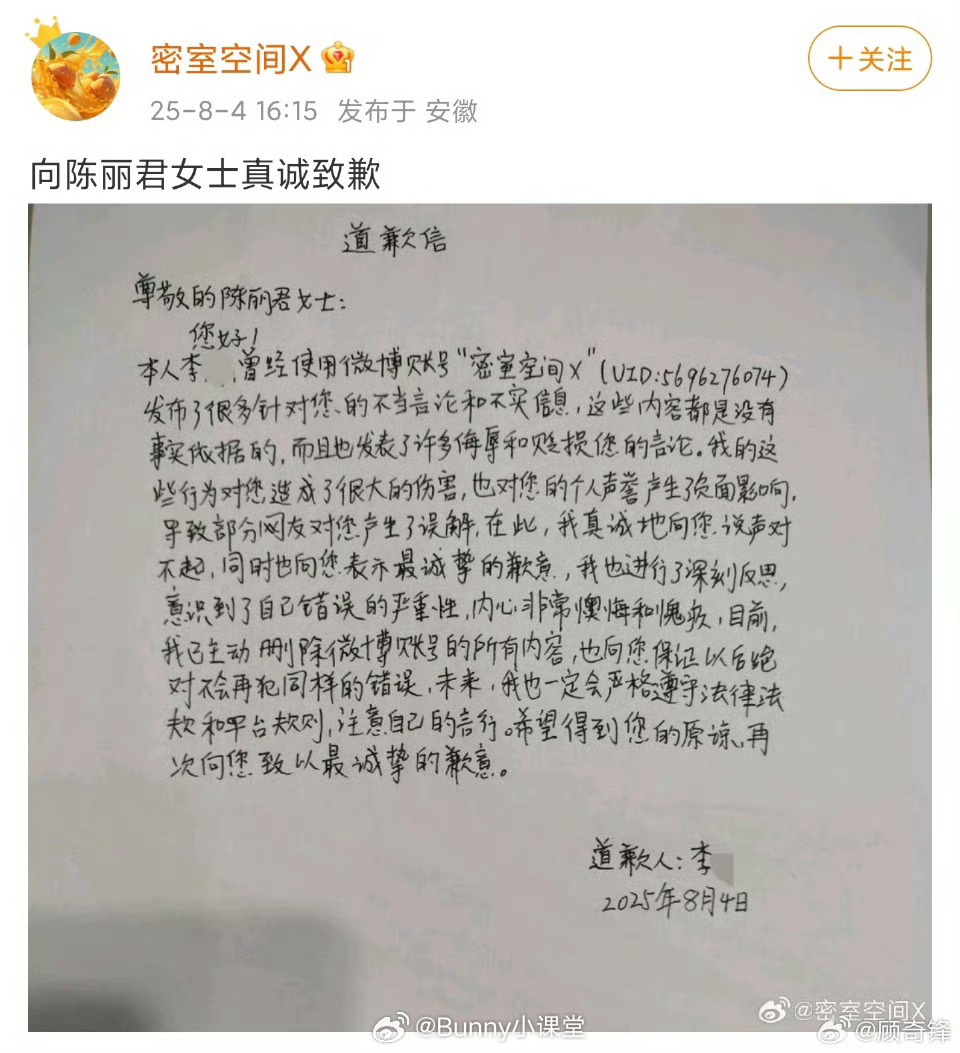 密室空间X
+关注
25-8-4 16:15 发布于 安徽
向陈丽君女士真诚致歉
道歉信
尊敬的陈丽君女士:
您好!
本人李 ,曾经使用微博账号"密室空间X"(UID:5696276074)
发布了很多针对您的不当言论和不实信息,这些内容都是没有
事实依据的,而且也发表了许多侮辱和贬损您的言论。我的这
些行为对您造成了很大的伤害,也对您的个人声誉产生了负面影响,
导致部分网友对您产生了误解,在此,我真诚地向您说声对
不起,同时也向您表示最诚挚的歉意,我也进行了深刻反思,
意识到了自己错误的严重性,内心非常懊悔和愧疚,目前,
我已主动删除微博账号的所有内容,也向您保证以后绝
对不会再犯同样的错误,未来,我也一定会严格遵守法律法
规和平台规则,注意自己的言行。希望得到您的原谅。再
次向您致以最诚挚的歉意。
道歉人:李
2025年8月4日
@密室空间X
@Bunny小课堂
@顾奇锋